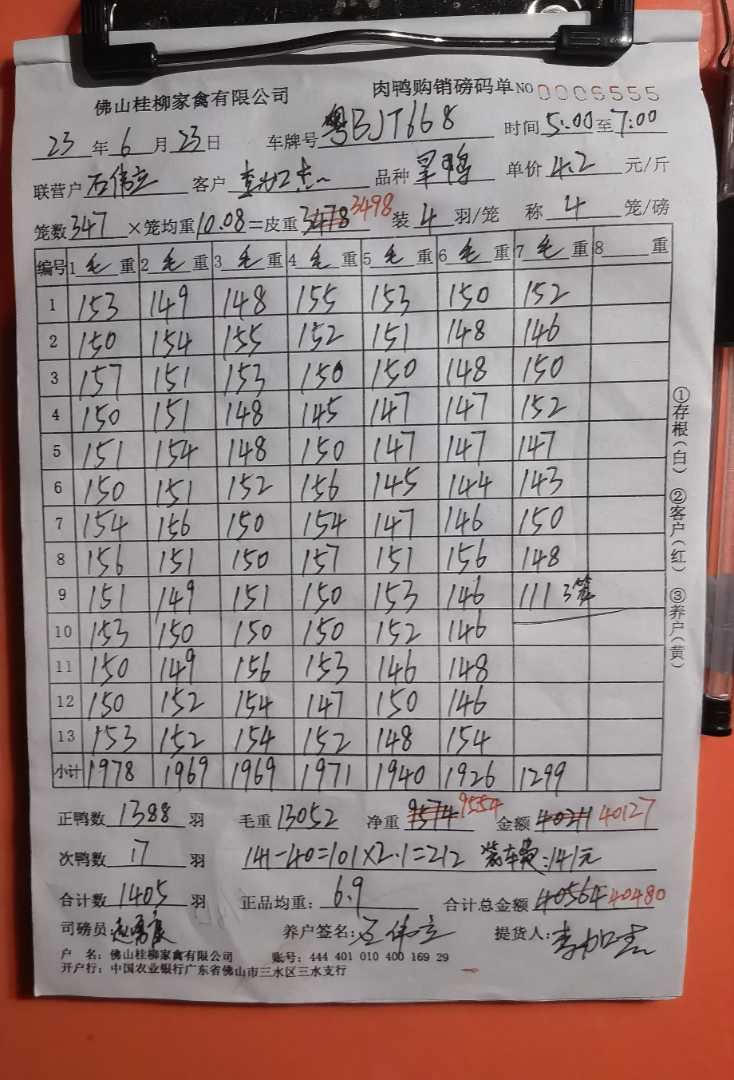 佛山桂柳家禽有限公司 肉鸭购销磅码单 NO 0006555
23 年 6 月 23 日 车牌号 粤BJT668 时间 5:00 至 7:00
联营户 石伟立 客户 李加志 品种 旱鸭 单价 4.2 元/斤
笼数 347 ×笼均重 10.08 =皮重 3478 3498 装 4 羽/笼 称 4 笼/磅
编号 1 毛 重 2 毛 重 3 毛 重 4 毛 重 5 毛 重 6 毛 重 7 毛 重 8 重
1 153 149 148 155 153 150 152
2 150 154 155 152 151 148 146
3 157 151 153 150 150 148 150
4 150 151 148 145 147 147 152
5 151 154 148 150 147 147 147
6 150 151 152 156 145 144 143
7 154 156 150 154 147 146 150
8 156 151 150 157 151 156 148
9 151 149 151 150 153 146 111 3笼
10 153 150 150 150 152 146
11 150 149 156 153 146 148
12 150 152 154 147 150 146
13 153 152 154 152 148 154
小计 1978 1969 1969 1971 1940 1926 1299
正鸭数 1388 羽 毛重 13052 净重 9574 9554 金额 40211 40127
次鸭数 17 羽 141-40=101×2.1=212 装车费:141元
合计数 1405 羽 正品均重: 6.9 合计总金额 40564 40480
司磅员: 养户签名: 石伟立 提货人: 李加志
户 名: 佛山桂柳家禽有限公司 账号: 444 401 010 400 169 29
开户行: 中国农业银行广东省佛山市三水区三水支行
①存根(白) ②客户(红) ③养户(黄)